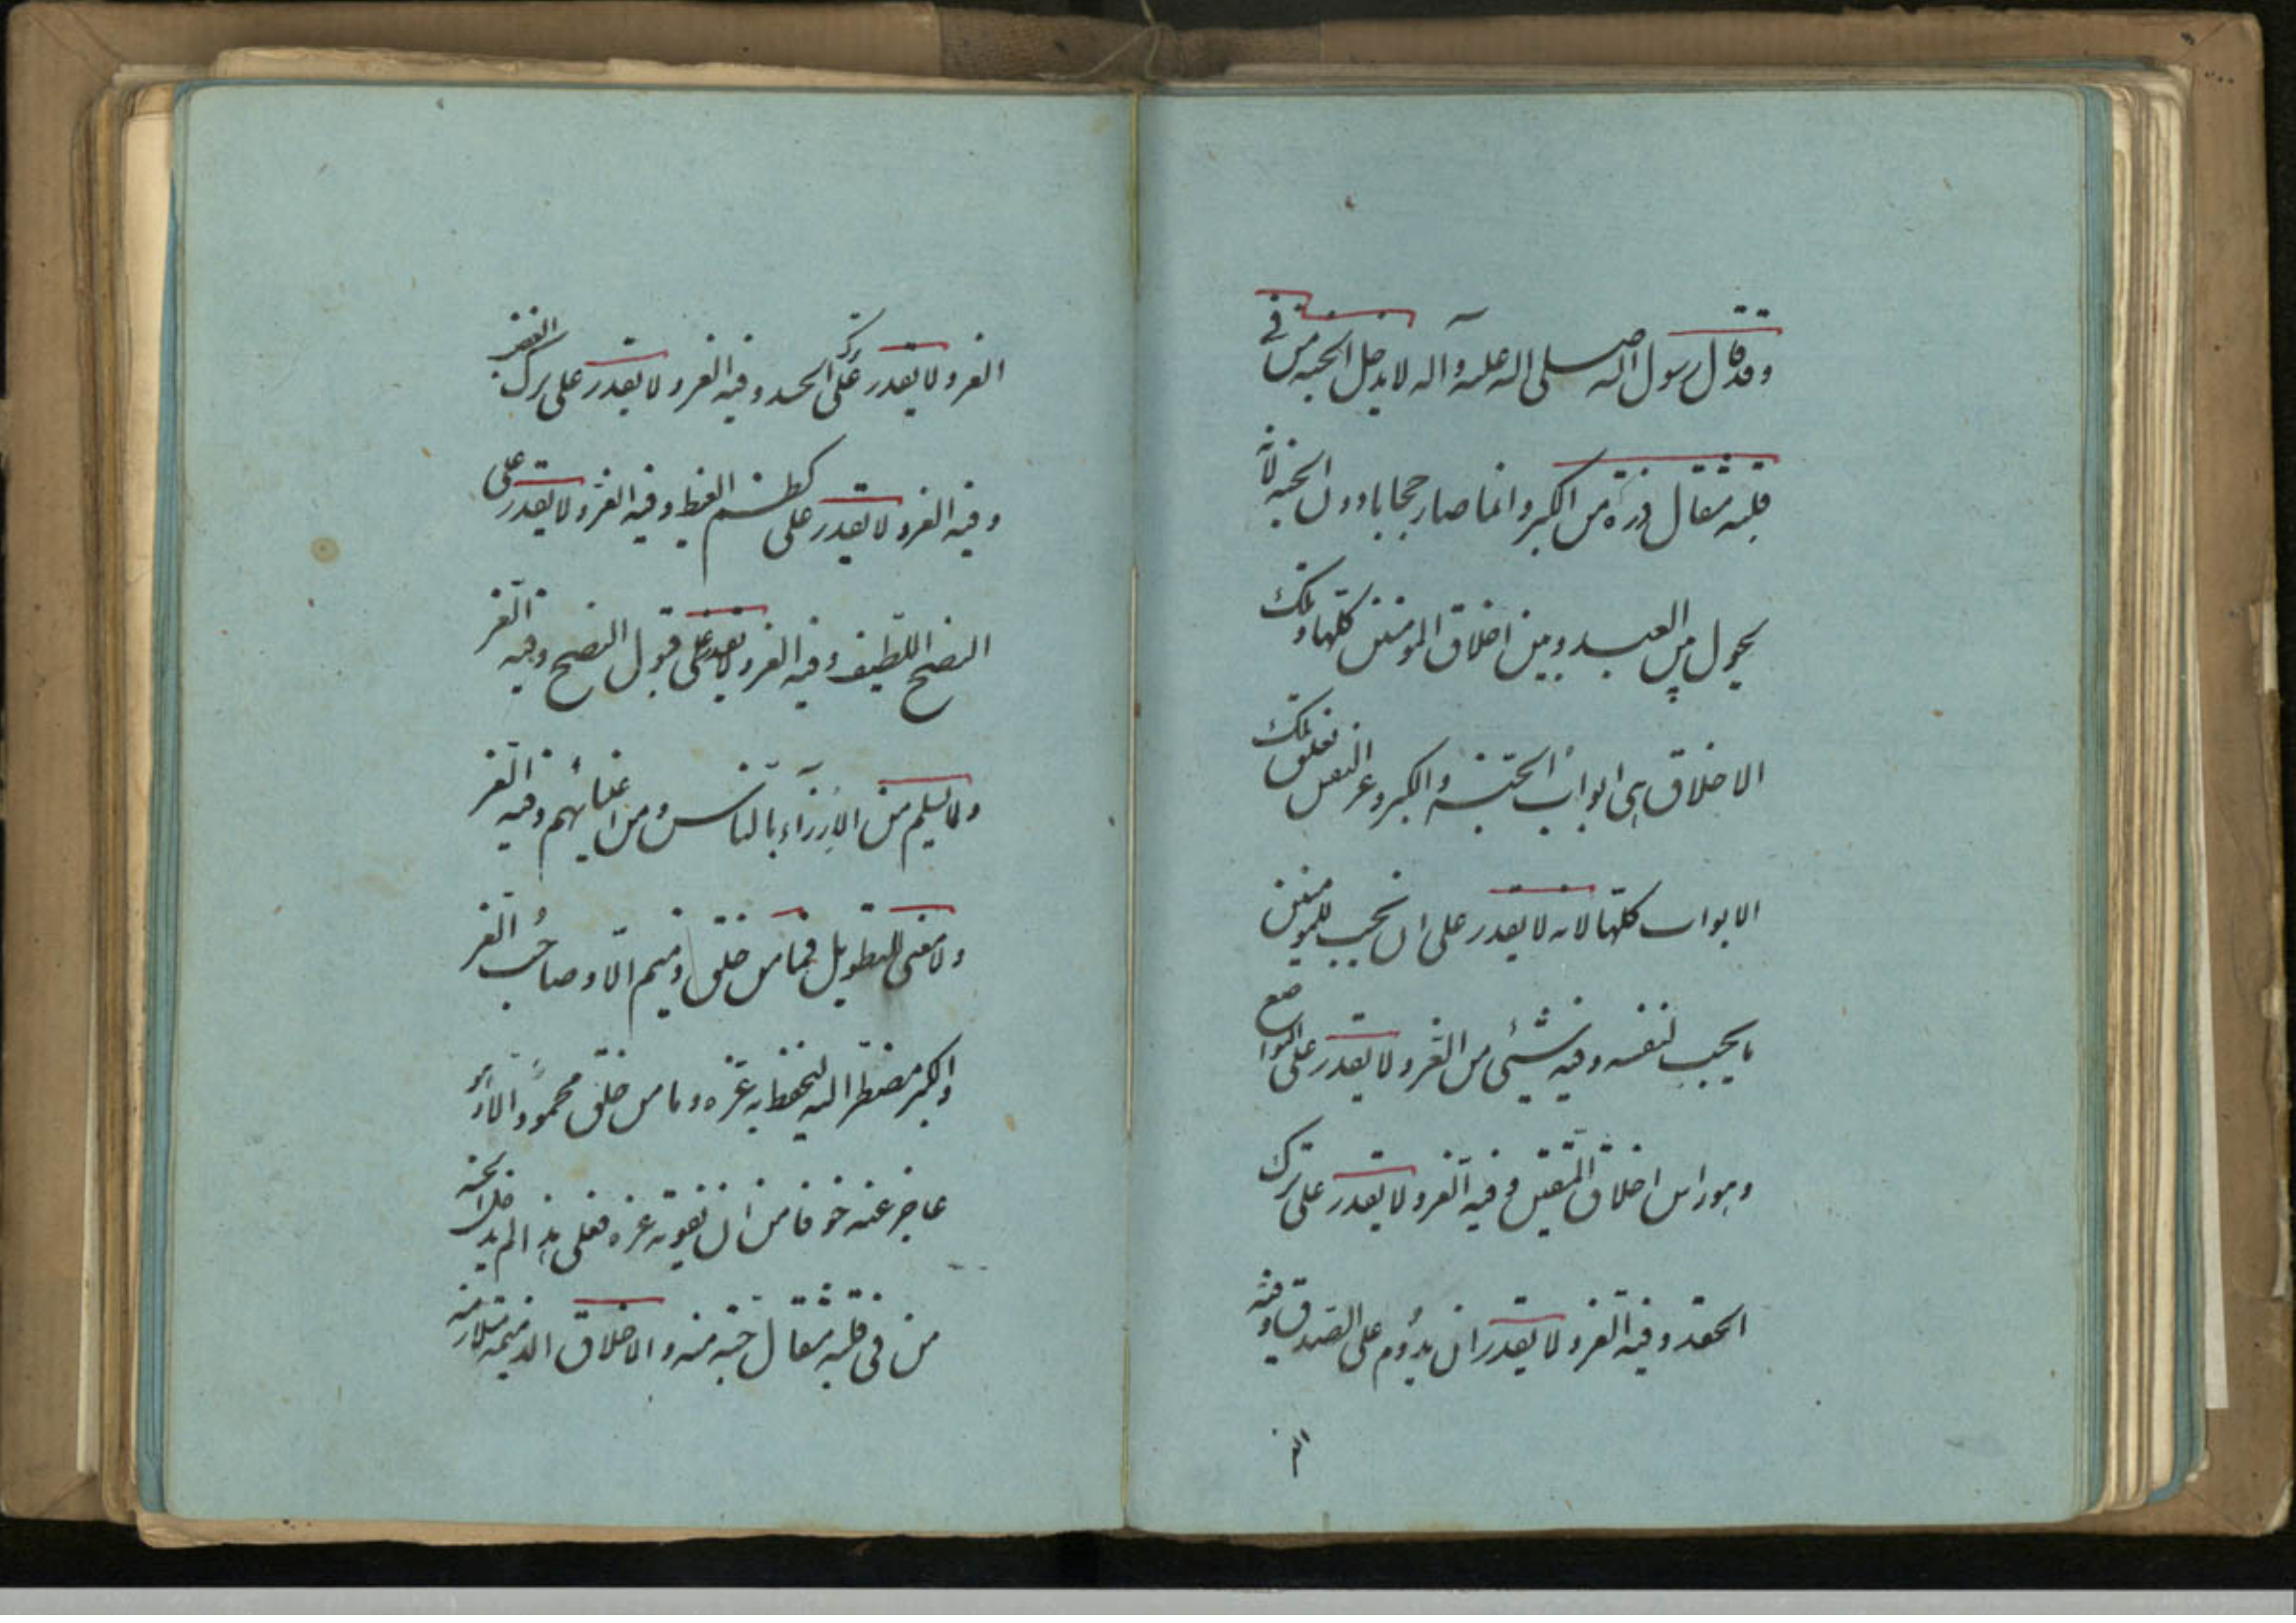 وقد قال رسول الله صلى الله عليه وآله لا يدخل الجنة من في
قلبه مثقال ذرة من الكبر وانما صار حجابا دون الجنة لانه
يحول بين العبد وبين اخلاق المومنين كلها وتلك
الاخلاق هى ابواب الجنة والكبر وعز النفس تغلق تلك
الابواب كلها لانه لا يقدر على ان يحب للمومنين
ما يحب لنفسه وفيه شيئ من العز ولا يقدر على التواضع
وهو راس اخلاق المتقين وفيه العز ولا يقدر على ترك
الحقد وفيه العز ولا يقدر ان يدوم على الصدق وفيه
العز
العز ولا يقدر على ترك الحسد وفيه العز ولا يقدر على ترك الغضب
وفيه العز ولا يقدر على كظم الغيظ وفيه العز ولا يقدر على
النصح اللطيف وفيه العز ولا يقدر على قبول النصح وفيه العز
ولا يسلم من الازراء بالناس ومن اغتيابهم وفيه العز
ولا معنى للتطويل فما من خلق ذميم الا وصاحب العز
والكبر مضطر اليه ليحفظ به عزه وما من خلق محمود الا وهو
عاجز عنه خوفا من ان يفوته عزه فعلى هذا لم يدخل الجنة
من في قلبه مثقال حبة منه والاخلاق الذميمة متلازمة